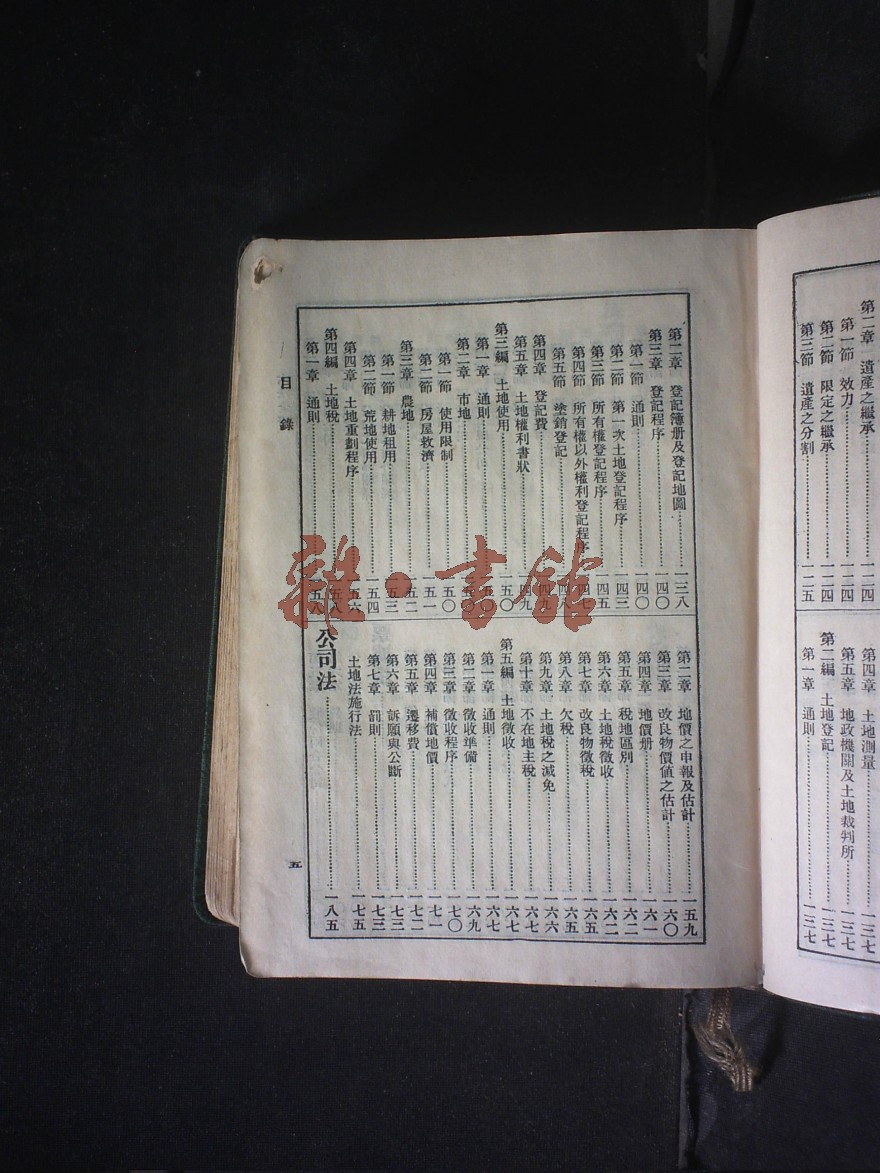 第二章 遺產之繼承 一二四
第一節 效力 一二四
第二節 限定之繼承 一二四
第三節 遺產之分割 一二五
第四章 土地測量 一三七
第五章 地政機關及土地裁判所 一三七
第二編 土地登記 一三七
第一章 通則 一三七
第二章 登記簿册及登記地圖 一三八
第三章 登記程序 一四〇
第一節 通則 一四〇
第二節 第一次土地登記程序 一四三
第三節 所有權登記程序 一四五
第四節 所有權以外權利登記程序 一四七
第五節 塗銷登記 一四八
第四章 登記費 一四九
第五章 土地權利書狀 一四九
第三編 土地使用 一五〇
第一章 通則 一五〇
第二章 市地 一五〇
第一節 使用限制 一五〇
第二節 房屋救濟 一五一
第三章 農地 一五二
第一節 耕地租用 一五三
第二節 荒地使用 一五四
第四章 土地重劃程序 一五六
第四編 土地稅 一五八
第一章 通則 一五八
第二章 地價之申報及估計 一五九
第三章 改良物價値之估計 一六〇
第四章 地價册 一六一
第五章 稅地區別 一六二
第六章 土地稅徵收 一六二
第七章 改良物徵稅 一六五
第八章 欠稅 一六五
第九章 土地稅之減免 一六六
第十章 不在地主稅 一六七
第五編 土地徵收 一六七
第一章 通則 一六七
第二章 徵收準備 一六九
第三章 徵收程序 一七〇
第四章 補償地價 一七一
第五章 遷移費 一七二
第六章 訴願與公斷 一七三
第七章 罰則 一七三
土地法施行法 一七五
公司法 一八五
目錄
五
雜·書館